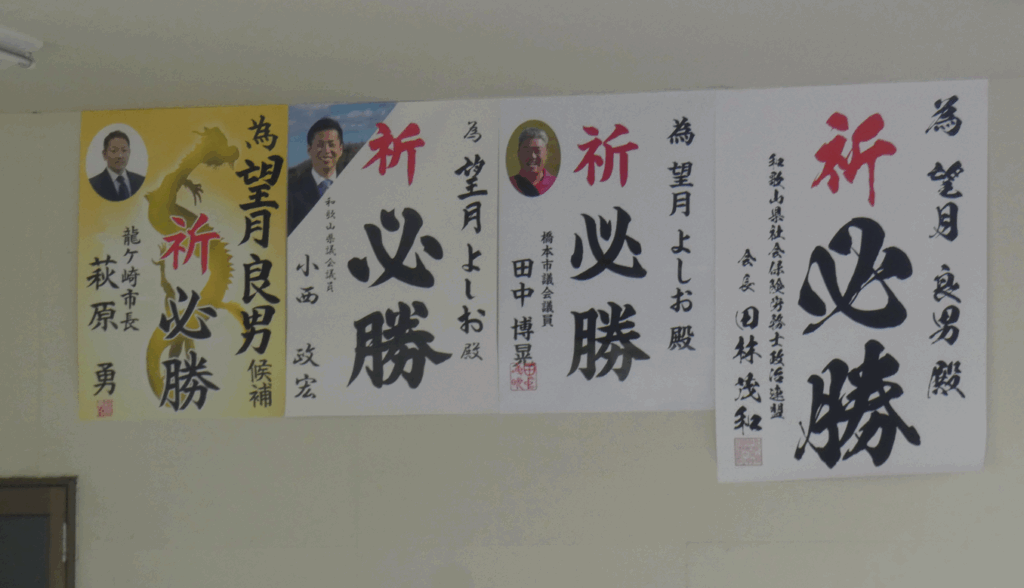 為 望月 良男 殿
祈 必勝
和歌山県社会保険労務士政治連盟
会長 田林 茂和
為 望月 よしお 殿
祈 必勝
橋本市議会議員
田中 博晃
為 望月 よしお 殿
祈 必勝
和歌山県議会議員
小西 政宏
為 望月 良男 候補
祈 必勝
龍ケ崎市長
萩原 勇